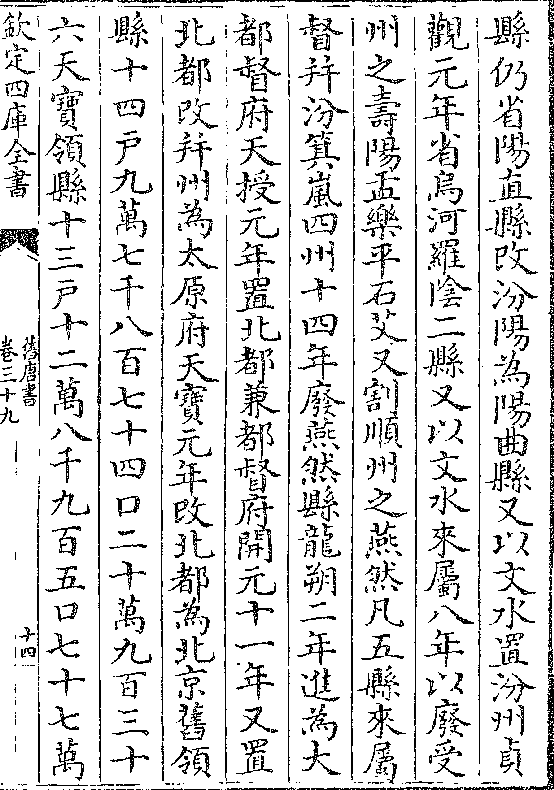 縣仍省陽直縣改汾陽為陽曲縣又以文水置汾州貞
觀元年省烏河羅隂二縣又以文水來屬八年以廢受
州之壽陽盂樂平石艾又割順州之燕然凡五縣來屬
督并汾箕嵐四州十四年廢燕然縣龍朔二年進為大
都督府天授元年置北都兼都督府開元十一年又置
北都改并州為太原府天寶元年改北都為北京舊領
縣十四戸九萬七千八百七十四口二十萬九百三十
六天寶領縣十三戸十二萬八千九百五口七十七萬
欽定四庫全書
舊唐書
卷三十九
十四